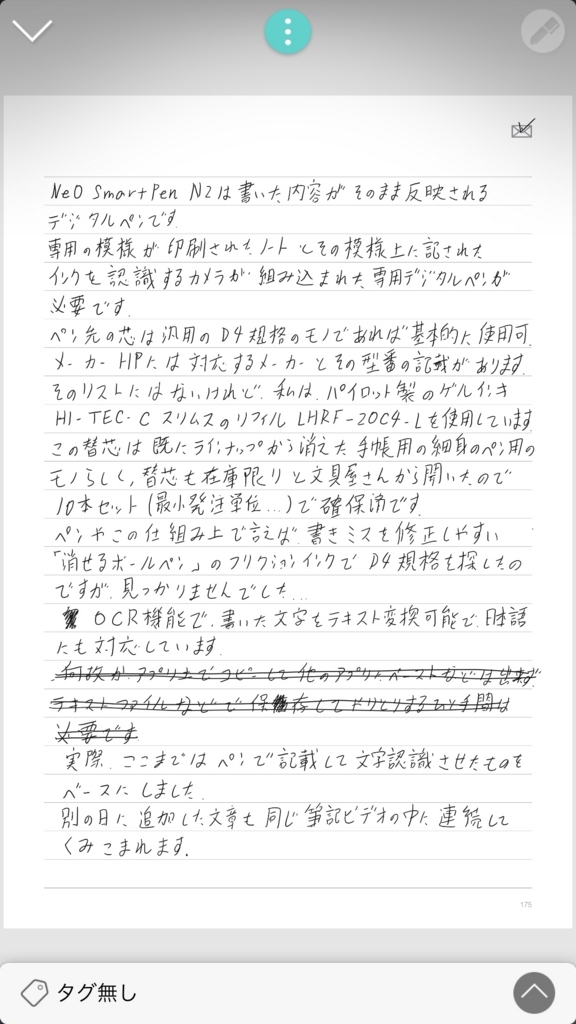 NeO SmartPen N2は書いた内容がそのまま反映される
デジタルペンです.
専用の模様が印刷されたノートとその模様上に記された
インクを認識するカメラが組み込まれた専用デジタルペンが
必要です.
ペン先の芯は汎用のD4規格のモノであれば基本的に使用可.
メーカーHPには対応するメーカーとその型番の記載があります.
そのリストにはないけれど、私は、パイロット製のゲルインキ
HI-TEC-C スリムスのリフィル LHRF-20C4-Lを使用しています.
この替芯は既にラインナップから消えた手帳用の細身のペン用の
モノらしく、替芯も在庫限りと文具屋さんから聞いたので
10本セット(最小発注単位...)で確保済です.
ペンやこの仕組み上で言えば、書きミスを修正しやすい
「消せるボールペン」のフリクションインクでD4規格を探したの
ですが、見つかりませんでした...
OCR機能で、書いた文字をテキスト変換可能で、日本語
にも対応しています.
何故かアプリ上でコピーして他のアプリにペーストなどは出来ず
テキストファイルなどで保存してやりとりするひと手間は
必要です
実際、ここまではペンで記載して文字認識させたものを
ベースにしました.
別の日に追加した文章も同じ筆記ビデオの中に連続して
くみこまれます.
175
タグ無し